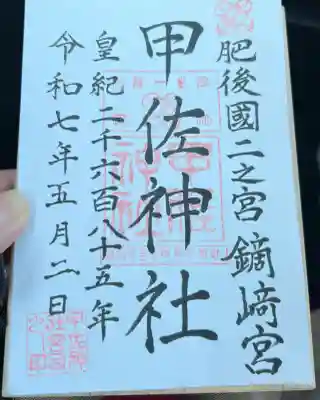 肥後國二之宮 鏑﨑宮
甲佐神社
皇紀二千六百八十五年
令和七年五月二日
甲佐神社